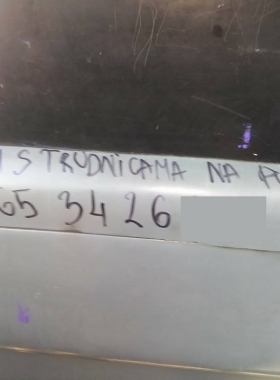 I S TRUDNICAMA NA
65 34 26